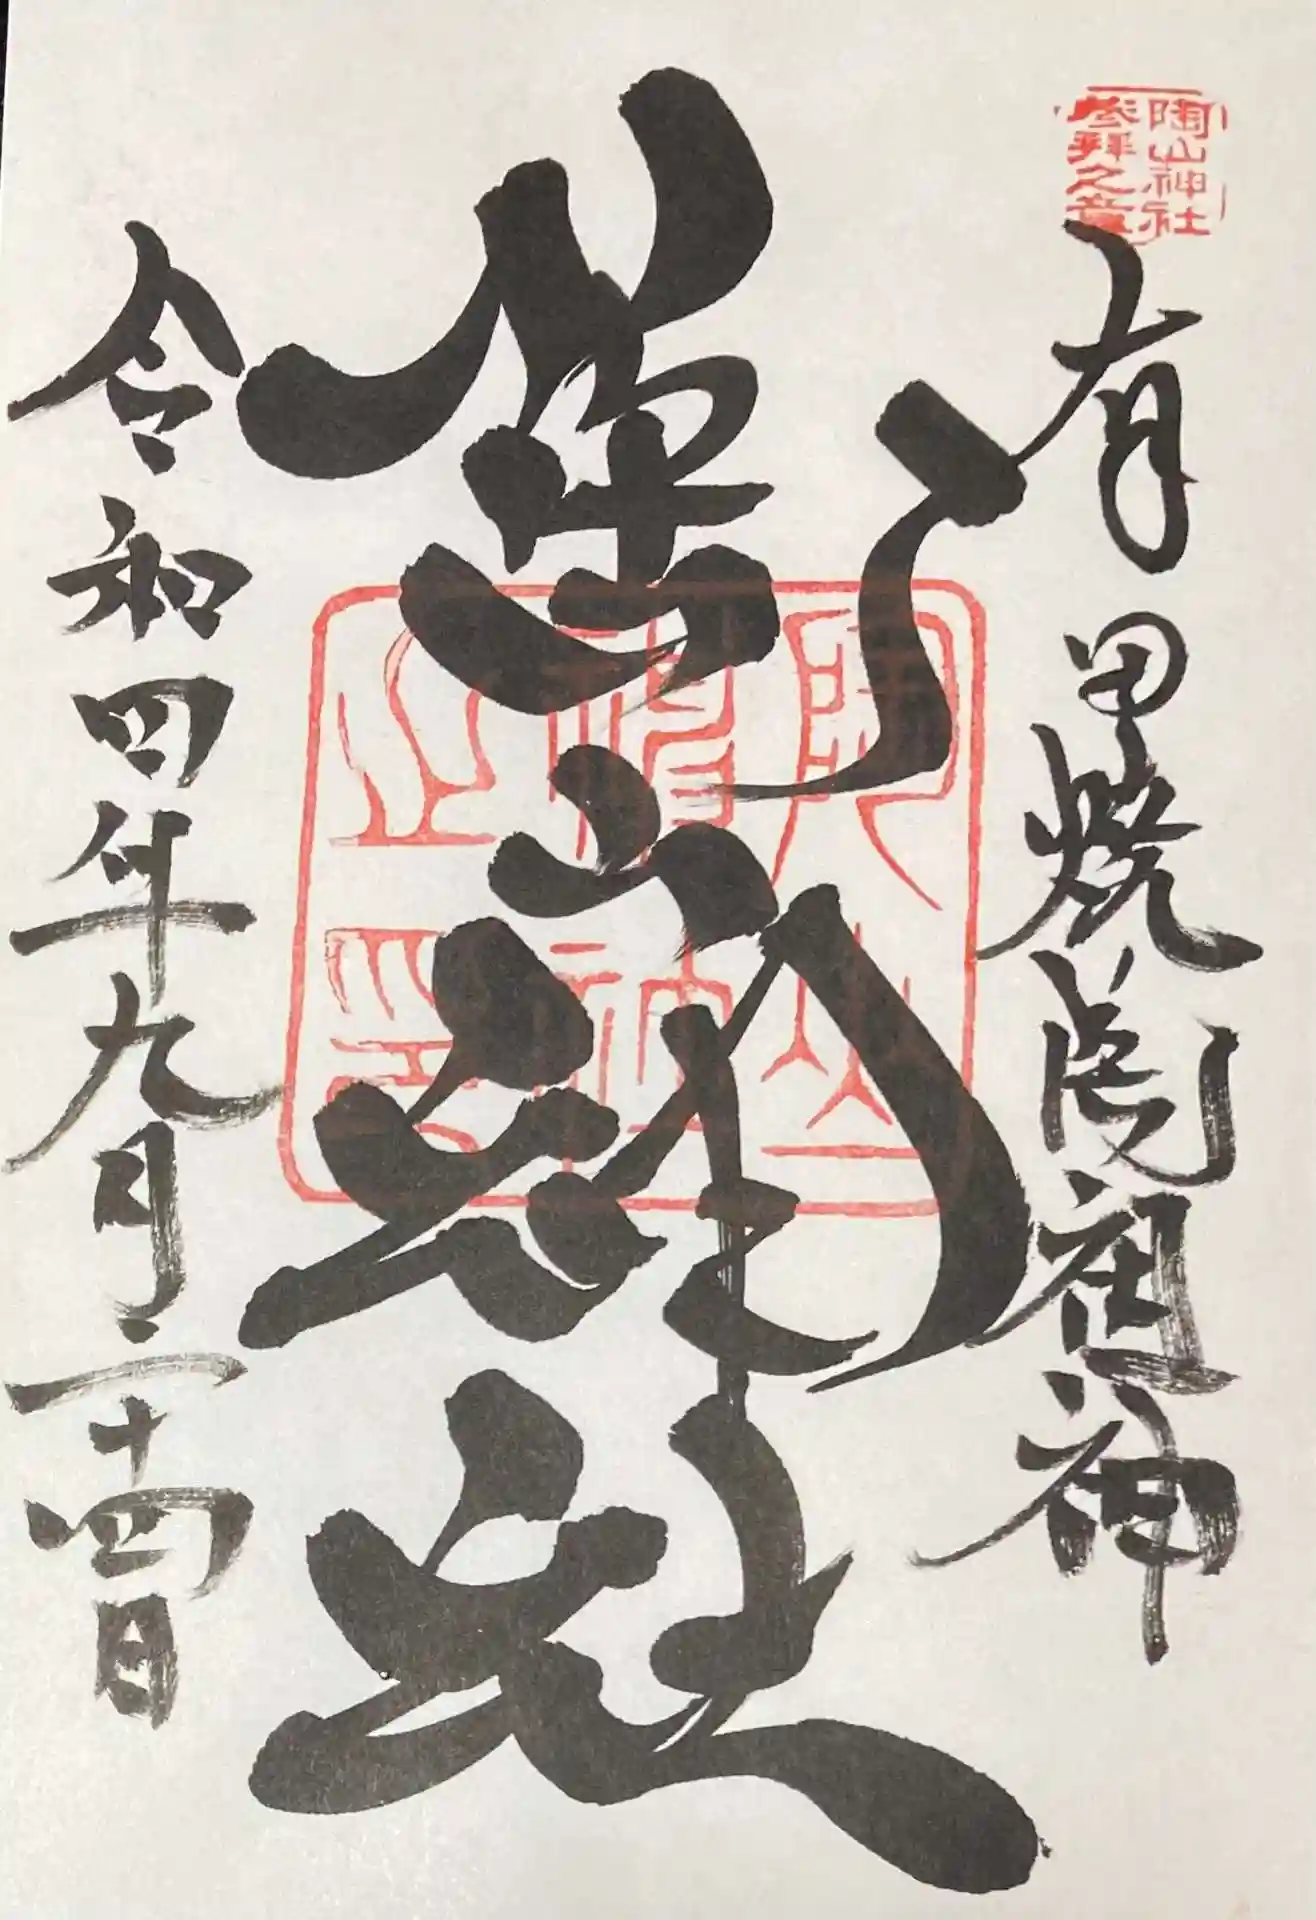 陶山神社
参拝之章
有田焼陶祖神
陶山神社
陶山
神社
之印
令和四年九月二十四日